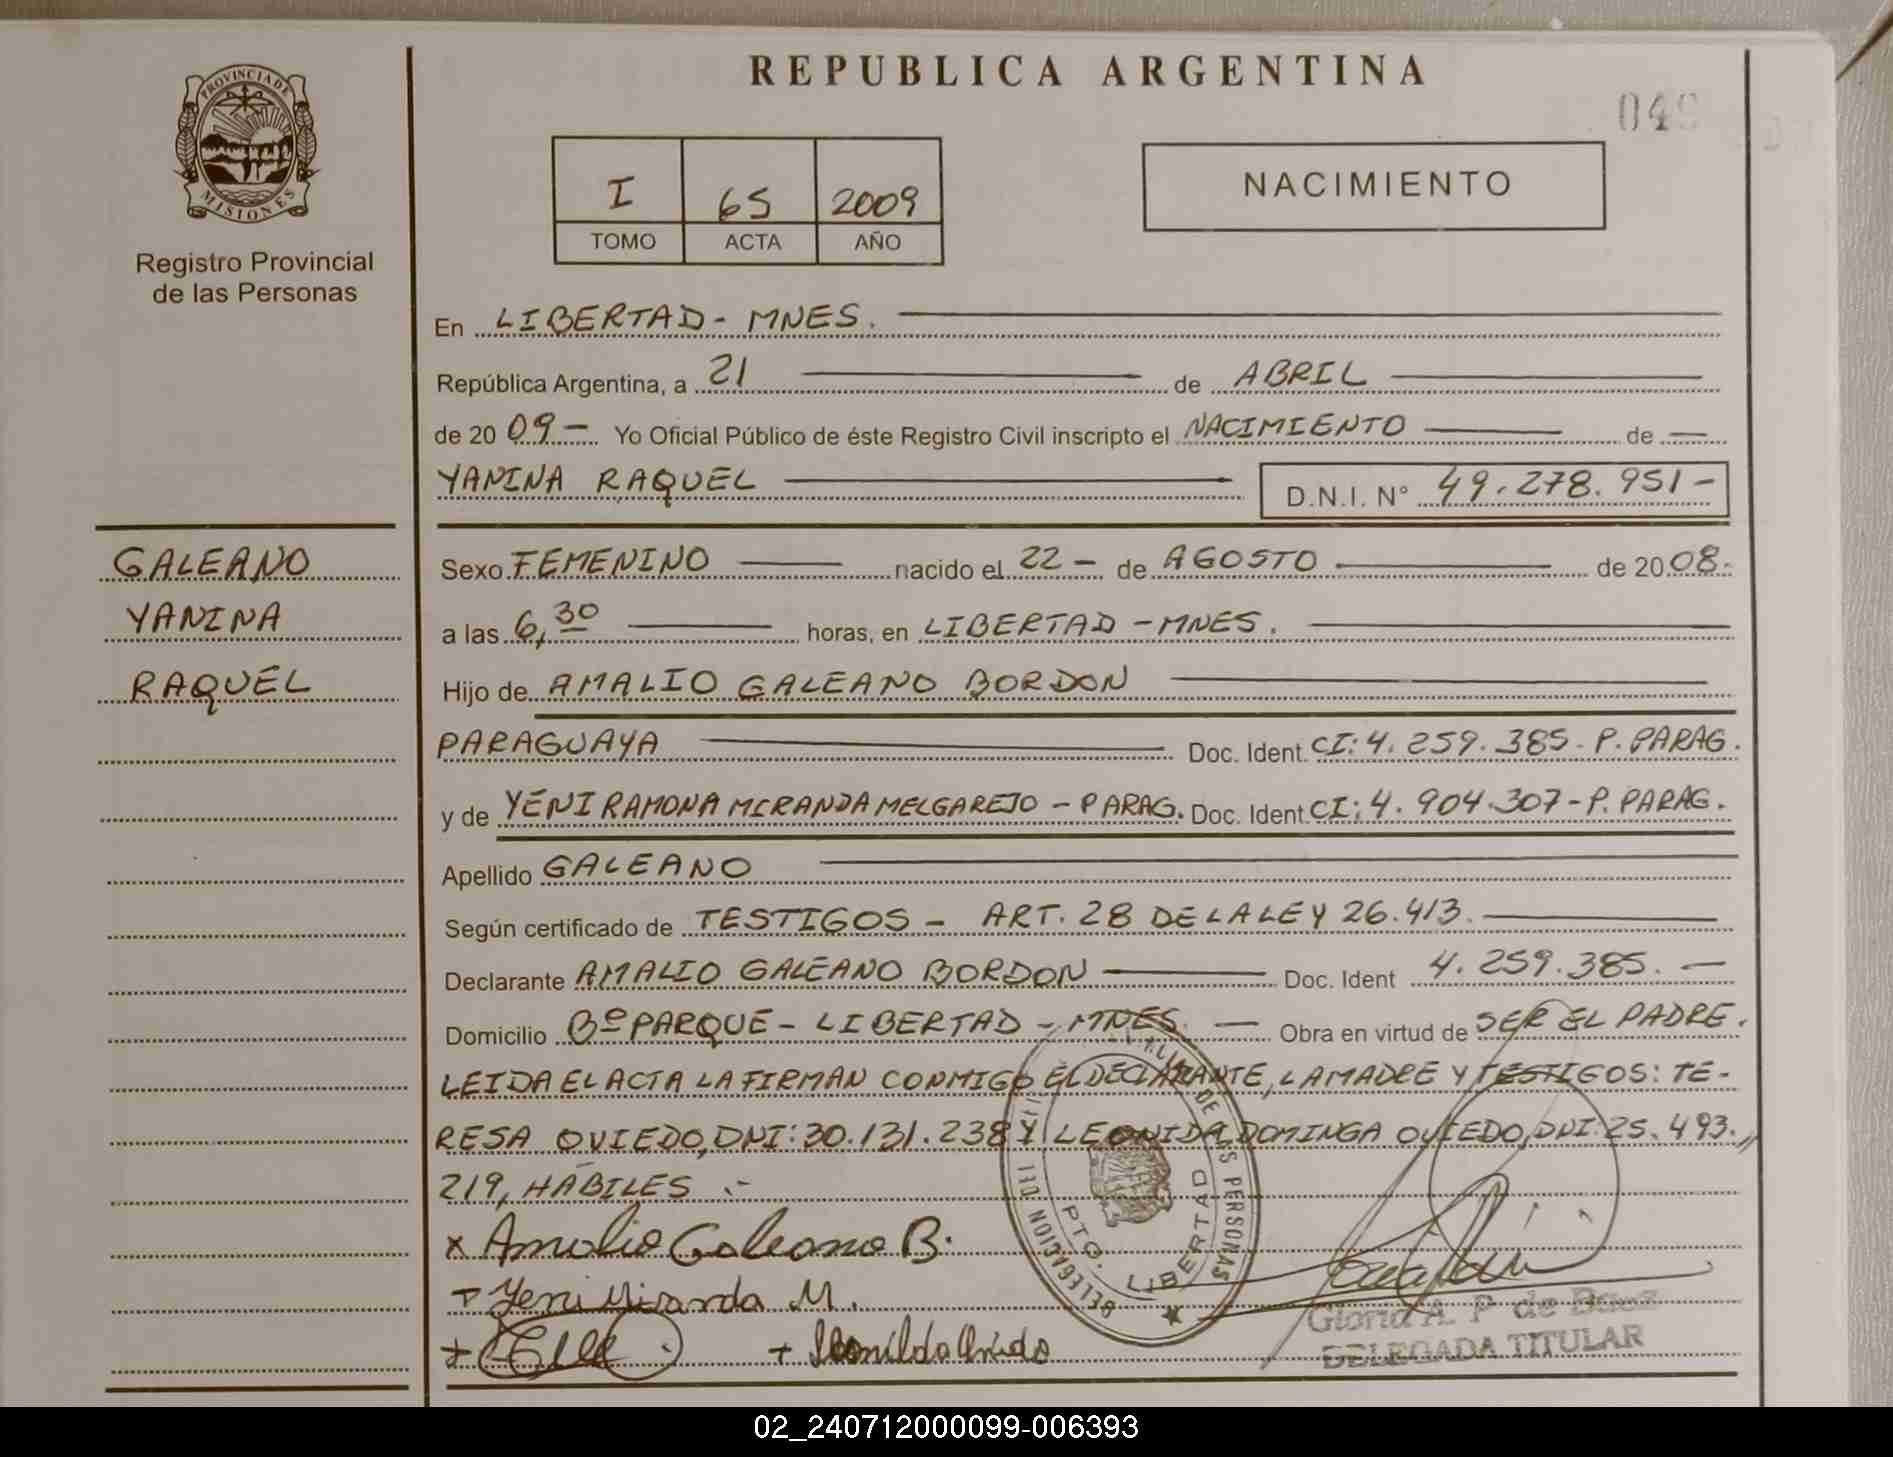 REPUBLICA ARGENTINA
PROVINCIA DE
MISIONES
Registro Provincial
de las Personas
I 65 2009
TOMO ACTA AÑO
NACIMIENTO
En LIBERTAD - MNES.
República Argentina, a 21 de ABRIL
de 20 09 - Yo Oficial Público de éste Registro Civil inscripto el NACIMIENTO de
YANINA RAQUEL D.N.I. N° 49.278.951-
GALEANO
YANINA
RAQUEL
Sexo FEMENINO nacido el 22 - de AGOSTO de 20 08.
a las 6,30 horas, en LIBERTAD - MNES.
Hijo de AMALIO GALEANO BORDON
PARAGUAYA Doc. Ident. CI: 4.259.385 - P. PARAG.
y de YENI RAMONA MIRANDA MELGAREJO - PARAG. Doc. Ident CI: 4.904.307 - P. PARAG.
Apellido GALEANO
Según certificado de TESTIGOS - ART. 28 DE LA LEY 26.413.
Declarante AMALIO GALEANO BORDON Doc. Ident 4.259.385. -
Domicilio Bº PARQUE - LIBERTAD - MNES. - Obra en virtud de SER EL PADRE.
LEIDA EL ACTA LA FIRMAN CONMIGO EL DECLARANTE, LA MADRE Y TESTIGOS: TE-
RESA OVIEDO, DNI: 30.131.238 Y LEONIDA DOMINGA OVIEDO, DNI: 25.493.
219, HÁBILES .-
x Amalio Galeano B.
Yeni Miranda M.
DELEGACION DEL DE LAS PERSONAS
PTO. LIBERTAD
Gloria A. P de Baez
DELEGADA TITULAR
02_240712000099-006393